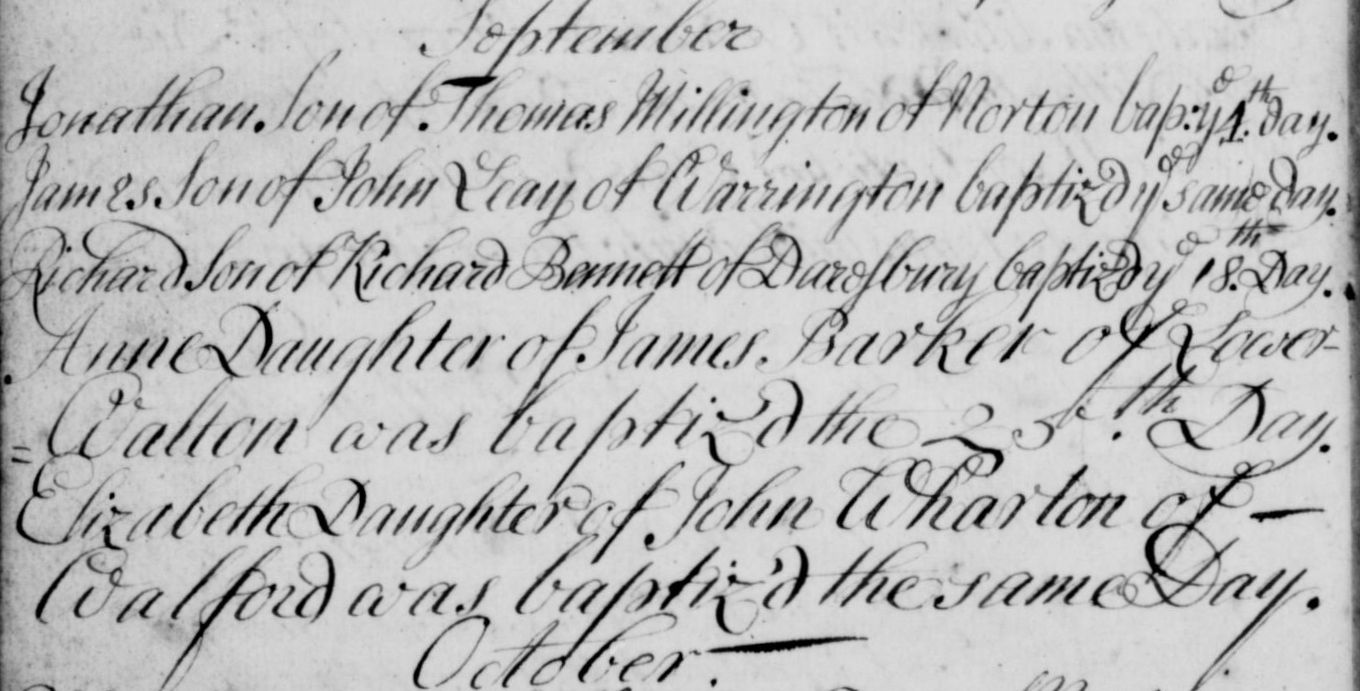 September
Jonathan. Son of Thomas Millington of Norton bap: yᵉ 4ᵗʰ day.
James Son of John Leay of Warrington baptiz'd yᵉ same Day.
Richard Son of Richard Bennett of Daresbury baptiz'd yᵉ 18.ᵗʰ Day.
Anne Daughter of James Barker of Lower-
=Walton was baptiz'd the 25.ᵗʰ Day.
Elizabeth Daughter of John Wharton of —
Walford was baptiz'd the same Day.
October.